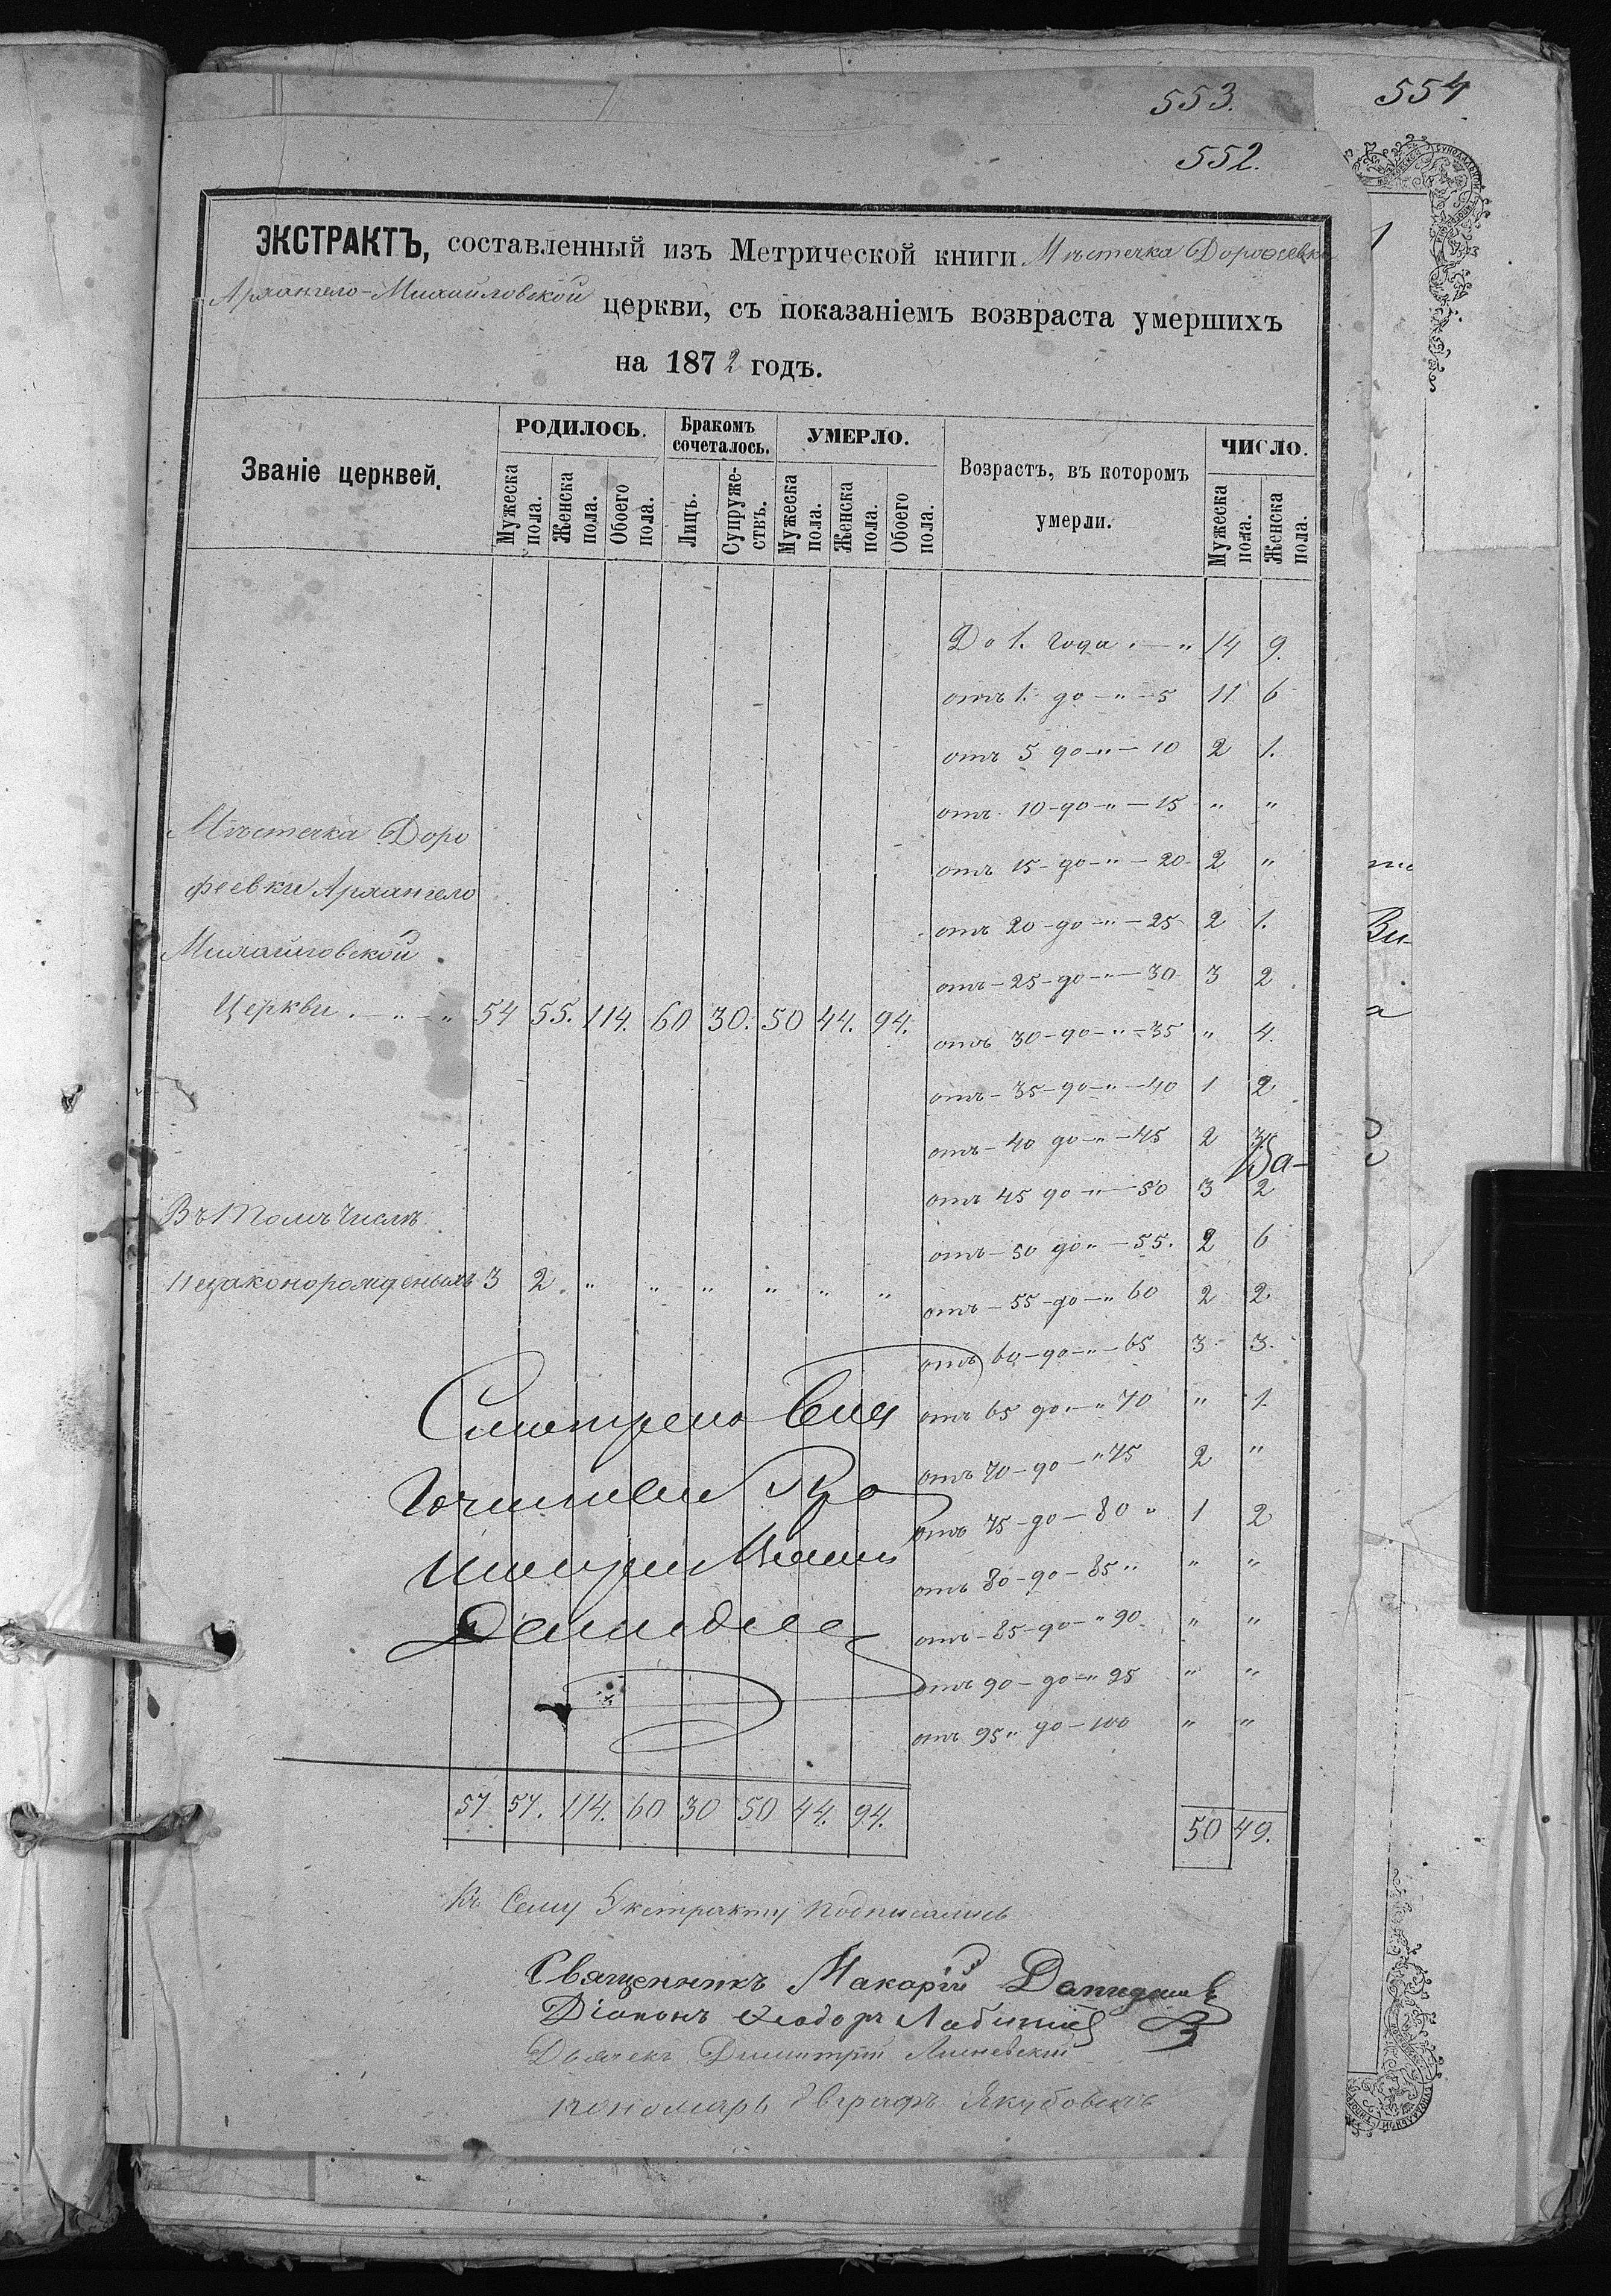 553.
554
552.
ЭКСТРАКТЪ, составленный изъ Метрической книги Мѣстечка Дорофеевки
Архангело-Михайловской церкви, съ показаніемъ возвраста умершихъ
на 1872 годъ.
Званіе церквей.
РОДИЛОСЬ.
Бракомъ сочеталось.
УМЕРЛО.
Возрастъ, въ которомъ умерли.
ЧИСЛО.
Мужеска пола.
Женска пола.
Обоего пола.
Лицъ.
Супружествъ.
Мужеска пола.
Женска пола.
Обоего пола.
Мужеска пола.
Женска пола.
До 1. года . — " 14 9.
отъ 1. до — " — 5 11 6
отъ 5 до — " — 10 2 1.
отъ 10 — до — " — 15 " "
отъ 15 — до — " — 20 2 "
отъ 20 — до — " — 25 2 1.
отъ — 25 — до — " — 30 3 2
отъ 30 — до — " — 35 " 4.
отъ — 35 — до — " — 40 1 2
отъ — 40 до — " — 45 2 3
отъ 45 до — " — 50 3 2
отъ — 50 до " — 55. 2 6
отъ — 55 — до — " 60 2 2
отъ 60 — до — " — 65 3 3.
отъ 65 до — " 70 " 1.
отъ 70 — до — " 75 2 "
отъ 75 — до — 80 " 1 2
отъ 80 — до — 85 " " "
отъ — 85 — до — " 90 " "
отъ 90 — до — " 95 " "
отъ 95 " до — 100 " "
50 49.
Мѣстечка Доро
феевки Архангело
Михайловской
Церкви . — " — " 54 55. 114. 60 30. 50 44. 94.
Въ томъ числѣ
незаконорожденыхъ 3 2 . " " " " " "
57 57. 114. 60 30 50 44. 94.
Къ Сему Экстракту подписались
Священникъ Макарій
Діаконъ Ѳеодоръ
Дьячекъ Димитрій Лисневскій
пономарь Евграфъ Якубовскъ